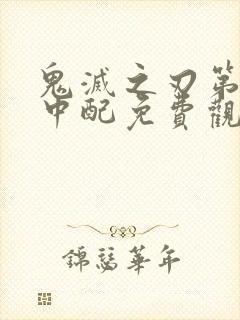 鬼滅之刃第
中配免費觀
錦瑟華年